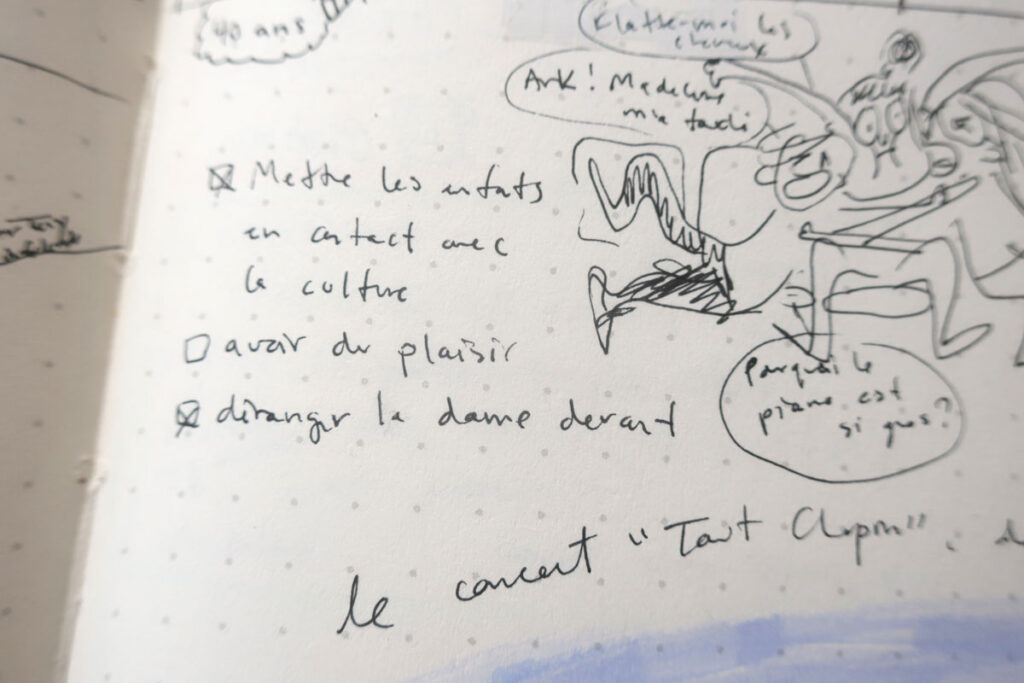 40 ans
les
Ark!
☒ Mettre les enfants
en contact avec
la culture
☐ avoir du plaisir
☒ déranger la dame devant
Pourquoi le
piano est
si gros?
le concert "Tout Chopin".